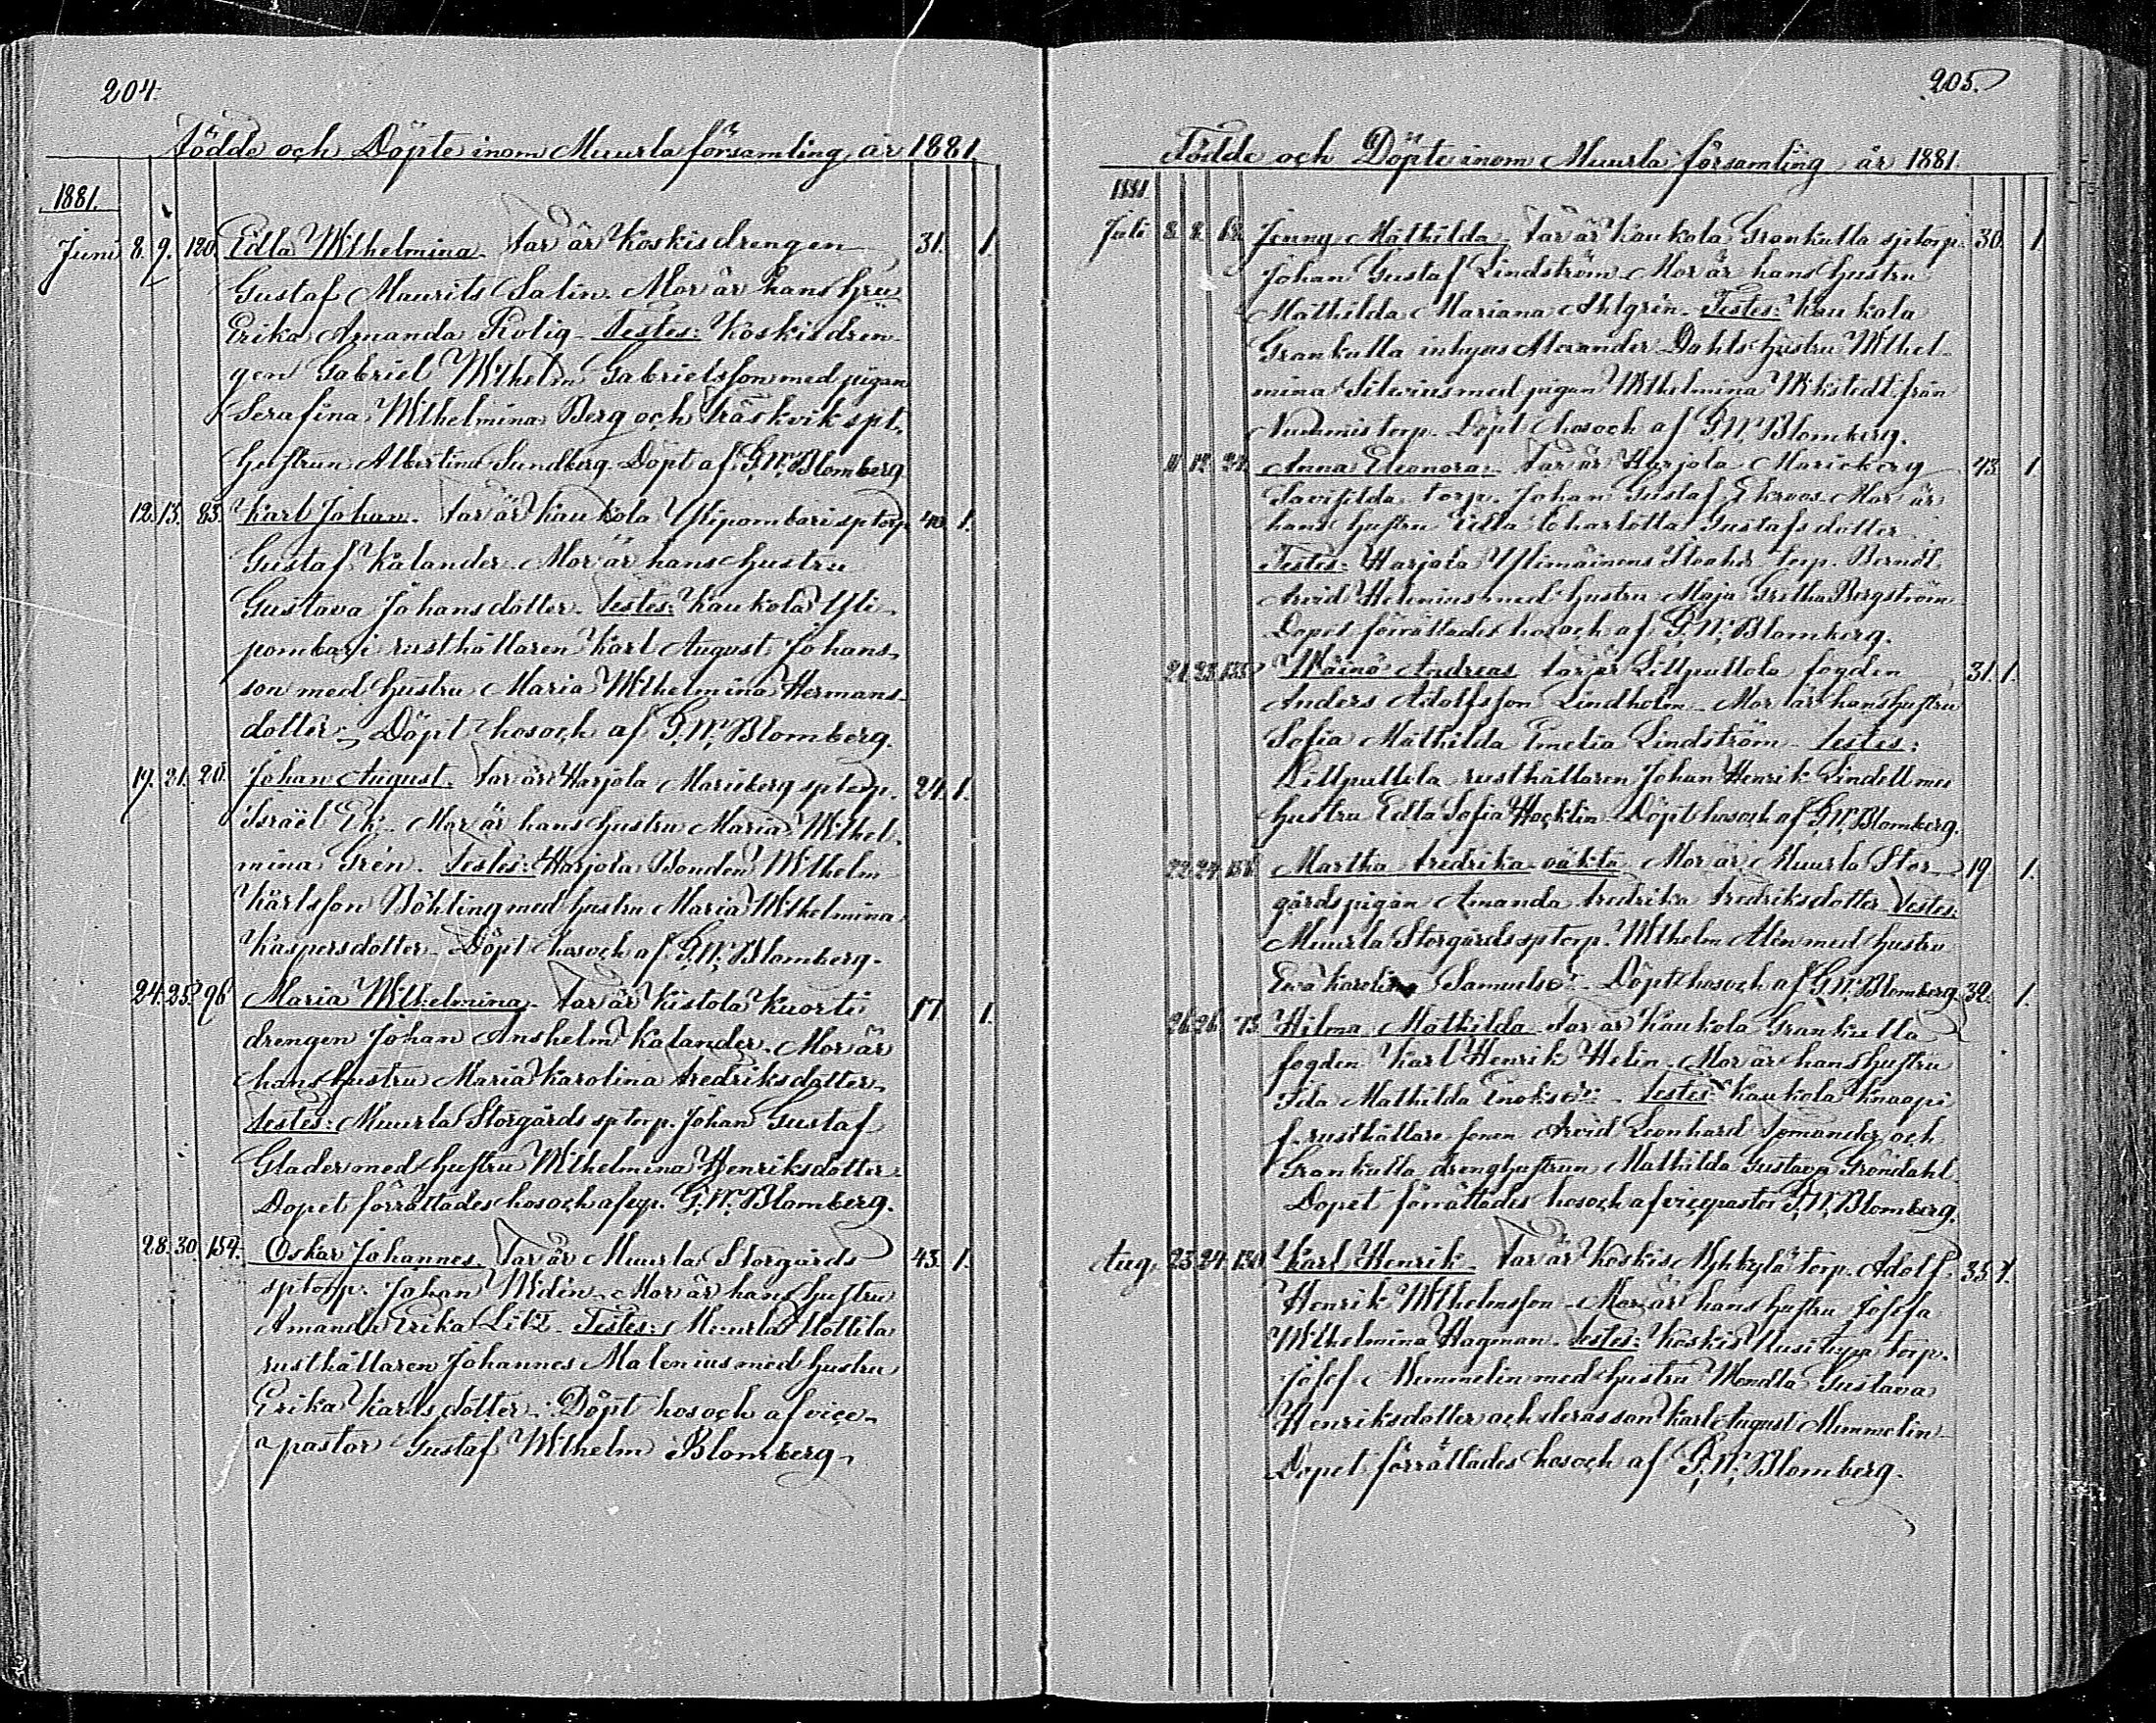 204.
Födde och Döpte inom Muurla församling år 1881
1881.
Juni 8. 9. 120. Edla Wilhelmina. Far är Koskis drengen 31. 1.
Gustaf Maurits Salin. Mor är hans hru
Erika Amanda Rolig. Testes: Koskis drän-
gen Gabriel Wilhelm Gabrielsson med pigan
Serafina Wilhelmina Berg och Träskvik spt.
hustrun Albertina Sundberg. Döpt af G. W. Blomberg
12. 13. 83. Karl Johan. Far är Kaukola Ylipombari sptorp. 40. 1.
Gustaf Kalander. Mor är hans hustru
Gustava Johansdotter. Testes: Kaukola Yli-
pombari rusthållaren Karl August Johans-
son med hustru Maria Wilhelmina Hermans-
dotter. Döpt hos och af G. W. Blomberg.
19. 21. 20. Johan August. Far är Harjola Marieberg sptorp. 24. 1.
Israël Ek. Mor är hans hustru Maria Wilhel-
mina Grén. Testes: Harjola Bonden Wilhelm
Karlsson Böhling med hustru Maria Wilhelmina
Kaspersdotter. Döpt hos och af G. W. Blomberg.
24. 25. 96. Maria Wilhelmina. Far är Kistola Kuorti 17. 1.
drengen Johan Anshelm Kalander. Mor är
hans hustru Maria Karolina Fredriksdotter.
Testes: Muurla Storgårds sptorp. Johan Gustaf
Glader med hustru Wilhelmina Henriksdotter.
Dopet förrättades hos och af vp. G. W. Blomberg.
28. 30. 154. Oskar Johannes. Far är Muurla Storgårds 43. 1.
sptorp. Johan Widén. Mor är hans hustru
Amanda Erika Litz. Testes: Muurla Uottila
rusthållaren Johannes Malenius med hustru
Erika Karlsdotter. Döpt hos och af vice-
pastor Gustaf Wilhelm Blomberg.
205.
Födde och Döpte inom Muurla församling år 1881.
1881.
Juli 8. 8. Jenny Mathilda. Far är Kaukola Grankulla sptorp. 30. 1.
Johan Gustaf Lindström. Mor är hans hustru
Mathilda Mariana Ahlgrén. Testes: Kaukola
Grankulla inhyses Alexander Dahls hustru Wilhel-
mina Silenius med pigan Wilhelmina Wikstedt från
Nummis torp. Döpt hos och af G. W. Blomberg.
11. 12. 24. Anna Eleonora. Far är Harjola Marieberg 43. 1.
torp. Johan Gustaf Ekroos. Mor är
hans hustru Edla Charlotta Gustafsdotter.
Testes: Harjola torp. Berndt
Arvid Helenius med hustru Maja Gretha Bergström.
Dopet förrättades hos och af G. W. Blomberg.
21. 23. 135. Wäinö Andreas. Far är Lillpullola fogden 31. 1.
Anders Adolfsson Lindholm. Mor är hans hustru
Sofia Mathilda Emelia Lindström. Testes:
Lillpullola rusthållaren Johan Henrik Lindell med
hustru Edla Sofia Hocklin. Döpt hos och af G. W. Blomberg.
22. 24. Martha Fredrika oäkta. Mor är Muurla Stor- 19. 1.
gårds pigan Amanda Fredrika Fredriksdotter Testes:
Muurla Storgårds sptorp. Wilhelm Alén med hustru
Eva Karolina Samuelsdr. Döpt hos och af G. W. Blomberg. 32. 1.
26. 26. 73. Hilma Mathilda. Far är Kaukola Grankulla
fogden Karl Henrik Helin. Mor är hans hustru
Ida Mathilda Enoksdr. Testes: Kaukola Knaapi
f. rusthållare sonen Arvid Leonhard och
Grankulla drenghustrun Mathilda Gustava Gröndahl.
Dopet förrättades hos och af vicepastor G. W. Blomberg.
Aug. 23. 24. 130. Karl Henrik. Far är Koskis Myhkylä torp. Adolf 35. 1.
Henrik Wilhelmsson. Mor är hans hustru Josefa
Wilhelmina Hagman. Testes: Koskis Uusitupa torp.
Josef Mummelin med hustru Wendla Gustava
Henriksdotter och deras son Karl August Mummelin.
Dopet förrättades hos och af G. W. Blomberg.